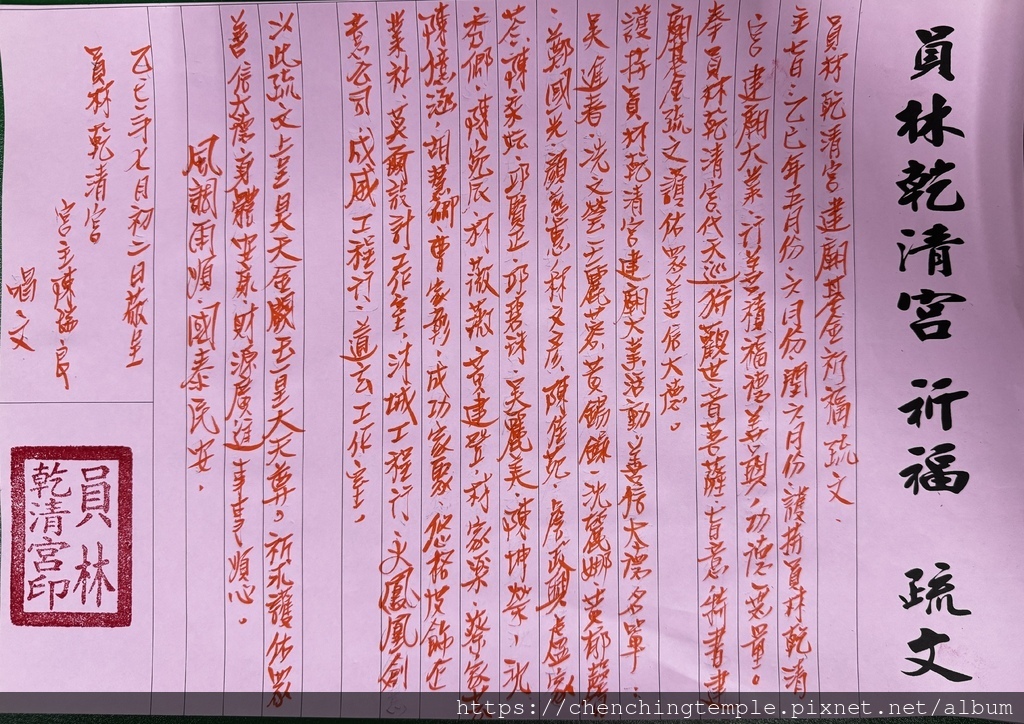 員林乾清宮 祈福 疏文
員林乾清宮建廟基金祈福疏文.
主七日.乙巳年五月份.六月份.閏六月份.護持員林乾清
宮建廟大業.行善積福德善因.功德無量。
奉員林乾清宮代天巡狩觀世音菩薩旨意.稱書建
廟基金疏之讀佑眾善信大德。
護持員林乾清宮建廟大業活動善信大德名單:
吳進春.洗文瑩.王麗蓉.黃錫鎵.沈麗娜.黃郁馨
鄭國光.顏 憲.林文彥.陳佳苑.詹政興.盧家
陳 .邱寶正.邱碧詩.吳麗美.陳坤榮.
秀鄉.陳宛辰.林薇薇.黃建 .林家樂.蔡家
陳憶涵.胡慧卿.曹家彰.成功家
業社.莫爾設計工作室.沐城工程行.火鳳凰創
意公司.成威工程行.道玄工作室.
以此疏文上呈昊天金闕玉皇大天尊。祈求護佑眾
善信大德身體安康.財源廣進.事事順心。
風調雨順.國泰民安.
乙巳年七月初二日敬呈
員林乾清宮
宮主陳 良
唱文
員林
乾清宮印
https://chenchingtemple.pixnet.net/album